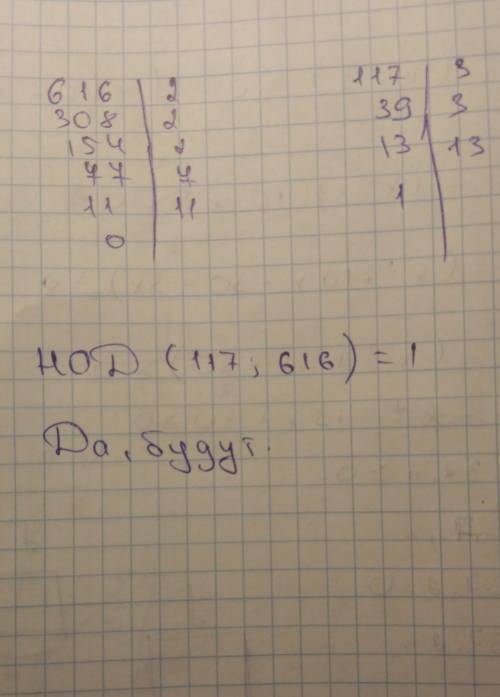 616 | 2
308 | 2
154 | 2
77 | 7
11 | 11
0
117 | 3
39 | 3
13 | 13
1
НОD (117; 616) = 1
Да, будут.